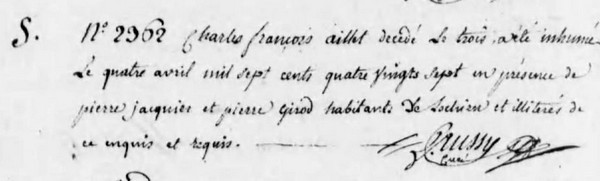 S. N° 2362 Charles françois aillet decedé Le trois, a été inhumé
Le quatre avril mil sept cents quatre vingts sept en présence de
pierre jacquier et pierre Girod habitants De et illiterés de
ce enquis et requis. Russy
Curé